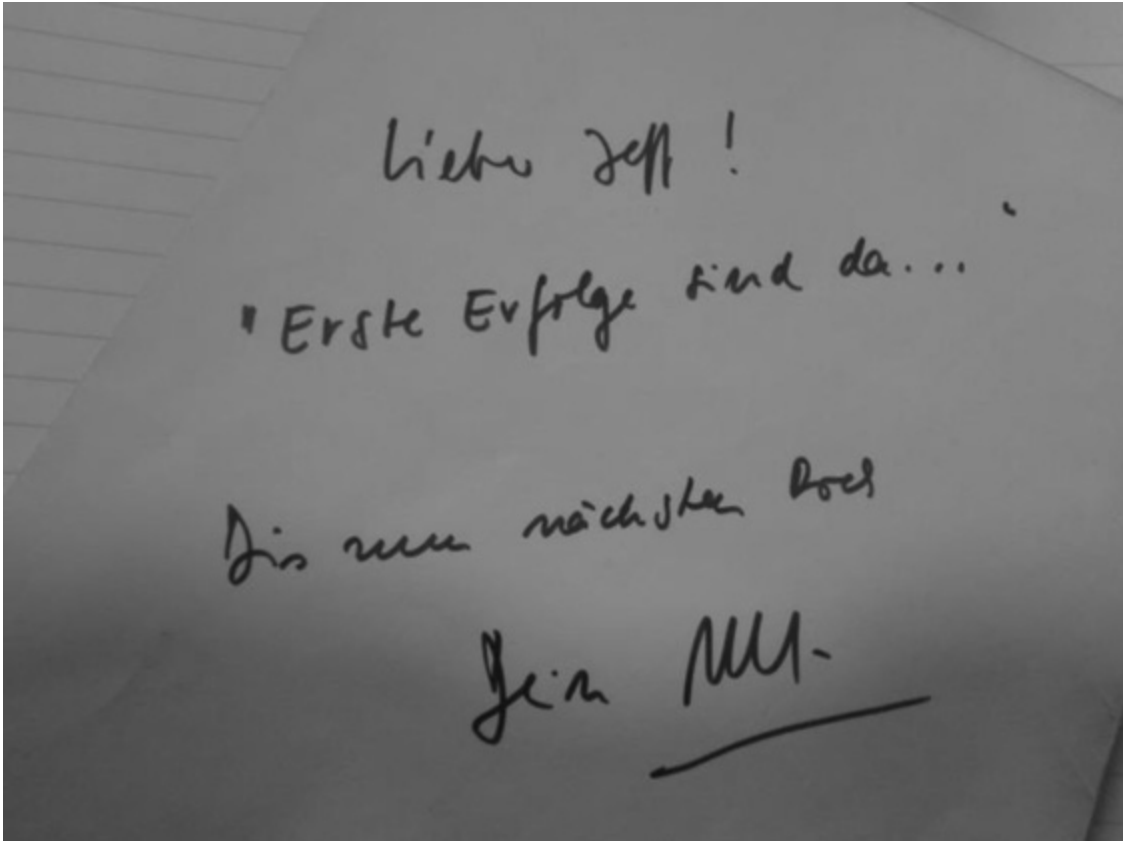 Lieber Jeff!
"Erste Erfolge sind da..."
Bis zum nächsten
Dein